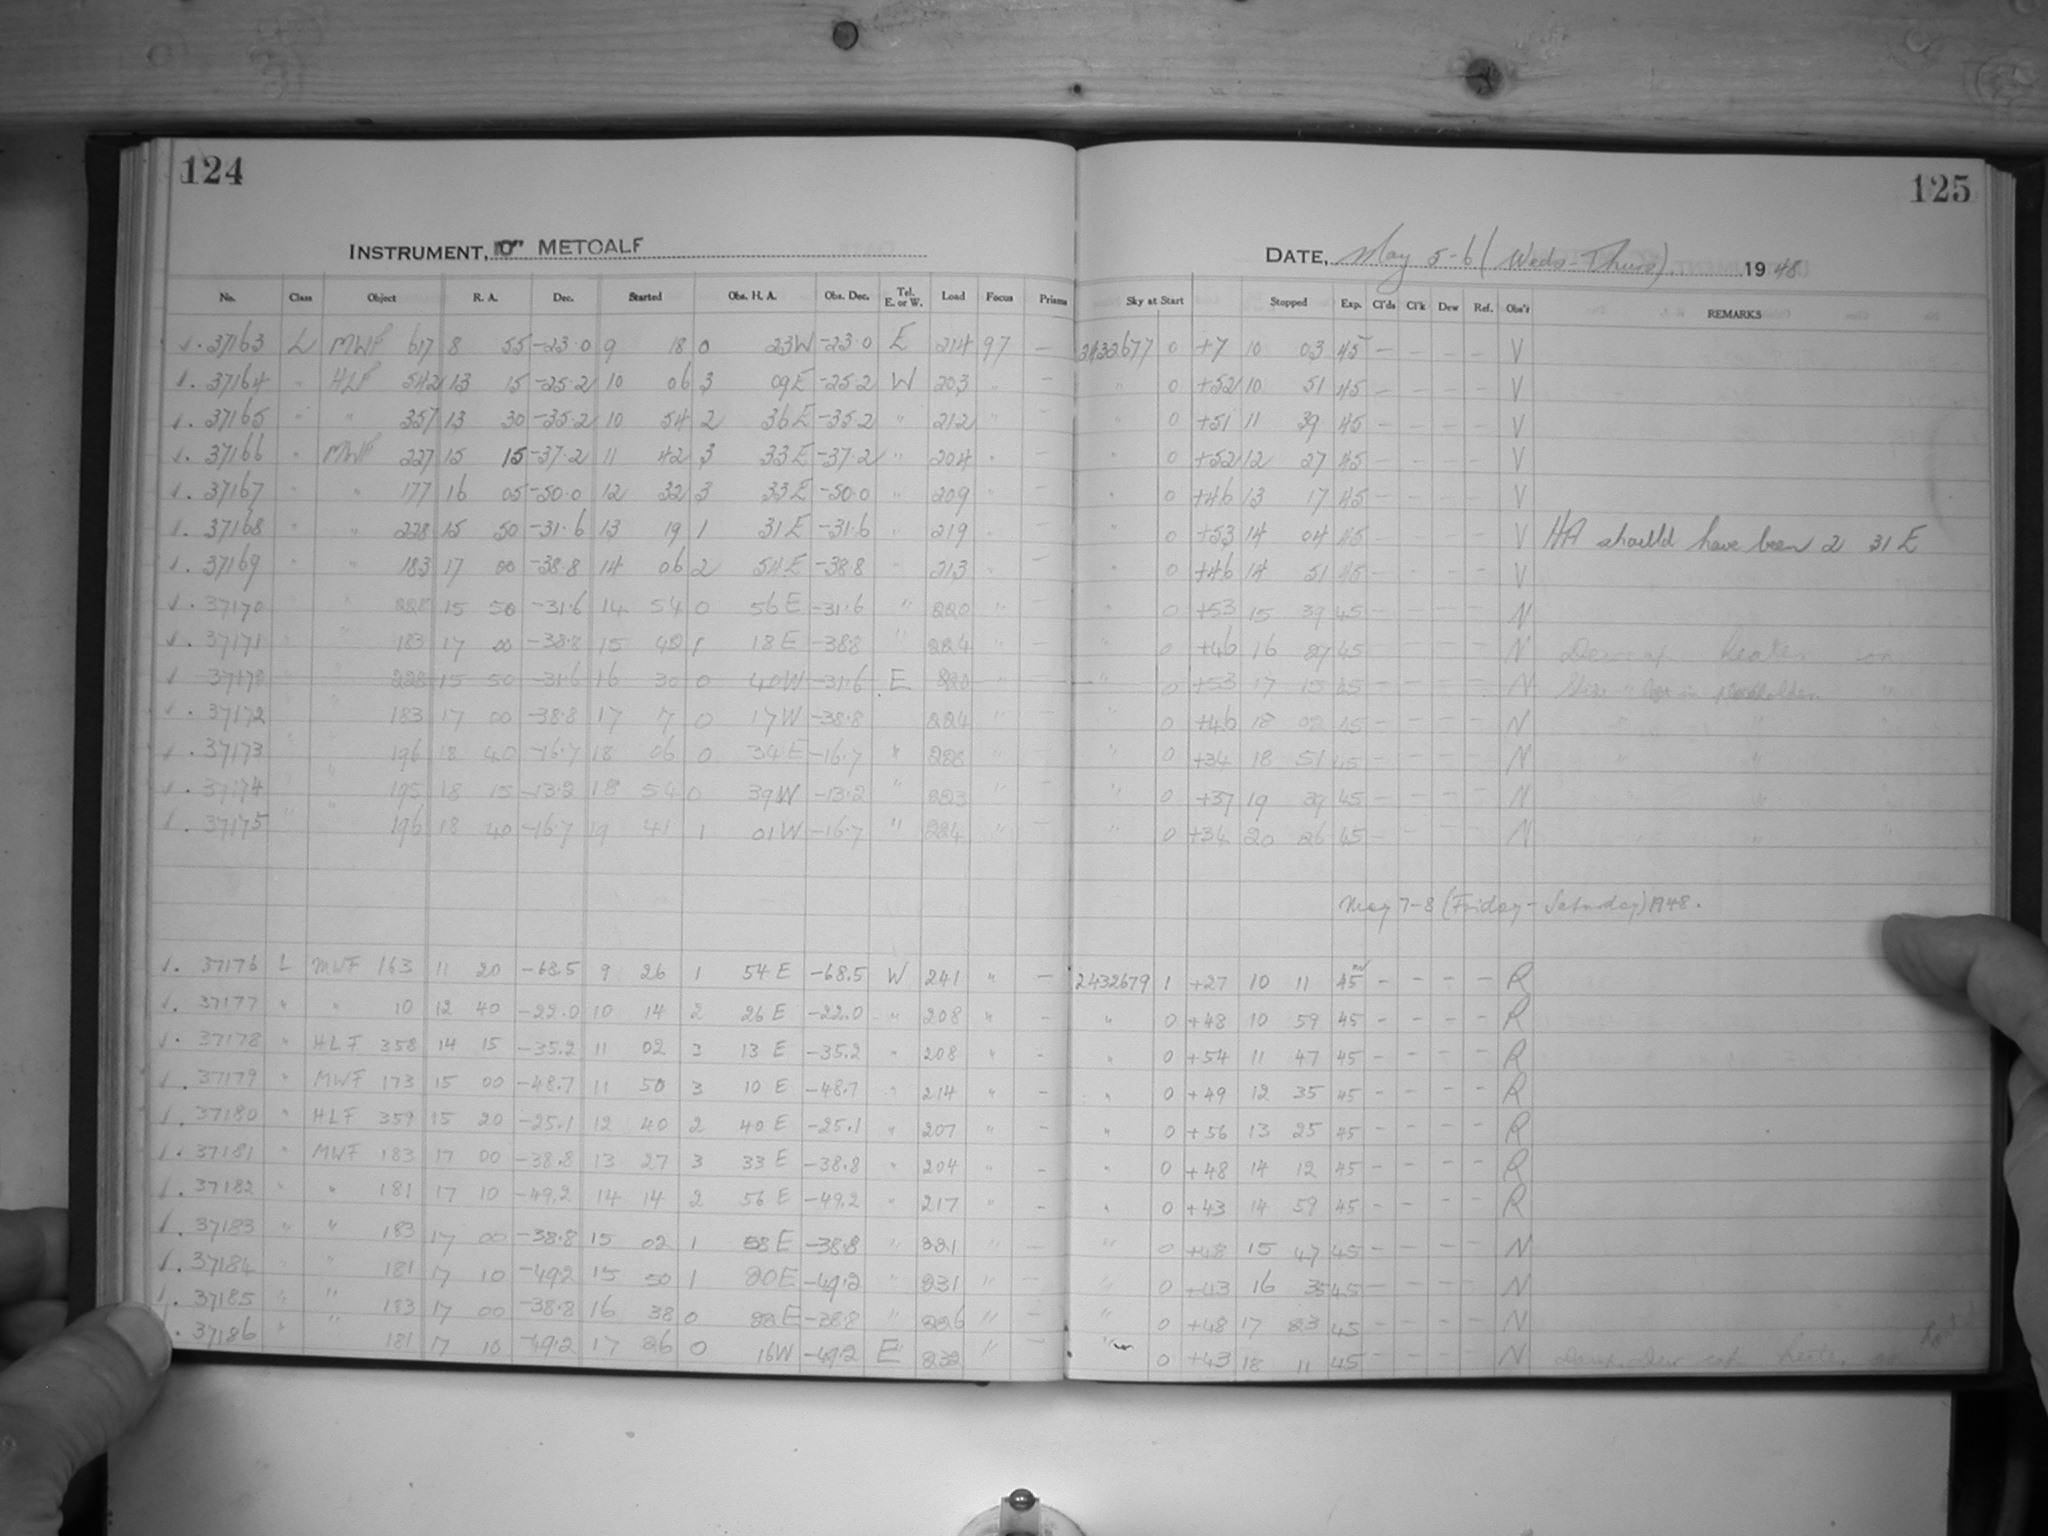 124
125
INSTRUMENT, 10" METCALF
DATE, May 5-6 (Weds-Thurs) 1948
No. Class Object R. A. Dec. Started Obs. H. A. Obs. Dec. Tel. E. or W. Load Focus Prisms Sky at Start Stopped Exp. Cl'ds Cl'k Dew Ref. Obs'r REMARKS
√. 37163 L MWF 617 8 55 -23.0 9 18 0 23W -23.0 E 214 97 — 2432677 0 +7 10 03 45 — — — — V
√. 37164 " HLF 542 13 15 -25.2 10 06 3 09E -25.2 W 203 " — " 0 +52 10 51 45 — — — — V
√. 37165 " " 357 13 30 -35.2 10 54 2 36E -35.2 " 212 " — " 0 +51 11 39 45 — — — — V
√. 37166 " MWF 227 15 15 -37.2 11 42 3 33E -37.2 " 204 " — " 0 +52 12 27 45 — — — — V
√. 37167 " " 177 16 05 -50.0 12 32 3 33E -50.0 " 209 " — " 0 +46 13 17 45 — — — — V
√. 37168 " " 228 15 50 -31.6 13 19 1 31E -31.6 " 219 " — " 0 +53 14 04 45 — — — — V HA should have been 2 31 E
√. 37169 " " 183 17 00 -38.8 14 06 2 54E -38.8 " 213 " — " 0 +46 14 51 45 — — — — V
√. 37170 " 228 15 50 -31.6 14 54 0 56E -31.6 " 220 " — " 0 +53 15 39 45 — — — — N
√. 37171 " 183 17 00 -38.8 15 42 1 18E -38.8 " 224 " — " 0 +46 16 27 45 — — — — N Dewcap heater on
√ " 228 15 50 -31.6 16 30 0 40W -31.6 E 220 " — " 0 +53 17 15 45 — — — — N
√. 37172 " 183 17 00 -38.8 17 7 0 17W -38.8 224 " — " 0 +46 18 02 45 — — — — N " "
√. 37173 " 196 18 40 -16.7 18 06 0 34E -16.7 " 228 " — " 0 +34 18 51 45 — — — — N " "
√. 37174 " 195 18 15 -13.2 18 54 0 39W -13.2 " 223 " — " 0 +37 19 39 45 — — — — N "
√. 37175 " 196 18 40 -16.7 19 41 1 01W -16.7 " 224 " — " 0 +34 20 26 45 — — — — N " "
May 7-8 (Friday-Saturday) 1948.
√. 37176 L MWF 163 11 20 -68.5 9 26 1 54 E -68.5 W 241 " — 2432679 1 +27 10 11 45 — — — — R
√. 37177 " " 10 12 40 -22.0 10 14 2 26 E -22.0 " 208 " — " 0 +48 10 59 45 — — — — R
√. 37178 " HLF 358 14 15 -35.2 11 02 3 13 E -35.2 " 208 " — " 0 +54 11 47 45 — — — — R
√. 37179 " MWF 173 15 00 -48.7 11 50 3 10 E -48.7 " 214 " — " 0 +49 12 35 45 — — — — R
√. 37180 " HLF 359 15 20 -25.1 12 40 2 40 E -25.1 " 207 " — " 0 +56 13 25 45 — — — — R
√. 37181 " MWF 183 17 00 -38.8 13 27 3 33 E -38.8 " 204 " — " 0 +48 14 12 45 — — — — R
√. 37182 " " 181 17 10 -49.2 14 14 2 56 E -49.2 " 217 " — " 0 +43 14 59 45 — — — — R
√. 37183 " " 183 17 00 -38.8 15 02 1 58 E -38.8 " 221 " — " 0 +48 15 47 45 — — — — N
√. 37184 " " 181 17 10 -49.2 15 50 1 20E -49.2 " 231 " — " 0 +43 16 35 45 — — — — N
√. 37185 " " 183 17 00 -38.8 16 38 0 22E -38.8 " 226 " — " 0 +48 17 23 45 — — — — N
√. 37186 " 181 17 10 -49.2 17 26 0 16W -49.2 E 232 " — " 0 +43 18 11 45 — — — — N Damp. Dew cap heater on